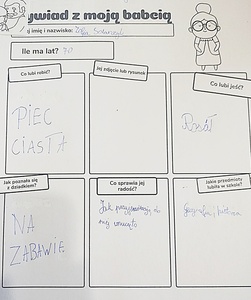 ywiad z moją babcią
ij imię i nazwisko: Zofia
Ile ma lat? 70
Co lubi robić?
PIEC
CIASTA
Jej zdjęcie lub rysunek
Co lubi jeść?
Rosół
Jak poznała się
z dziadkiem?
NA
ZABAWIE
Co sprawia jej
radość?
Jak przyjeżdżają do
niej wnuczęta
Jakie przedmioty
lubiła w szkole?
Geografia i historia